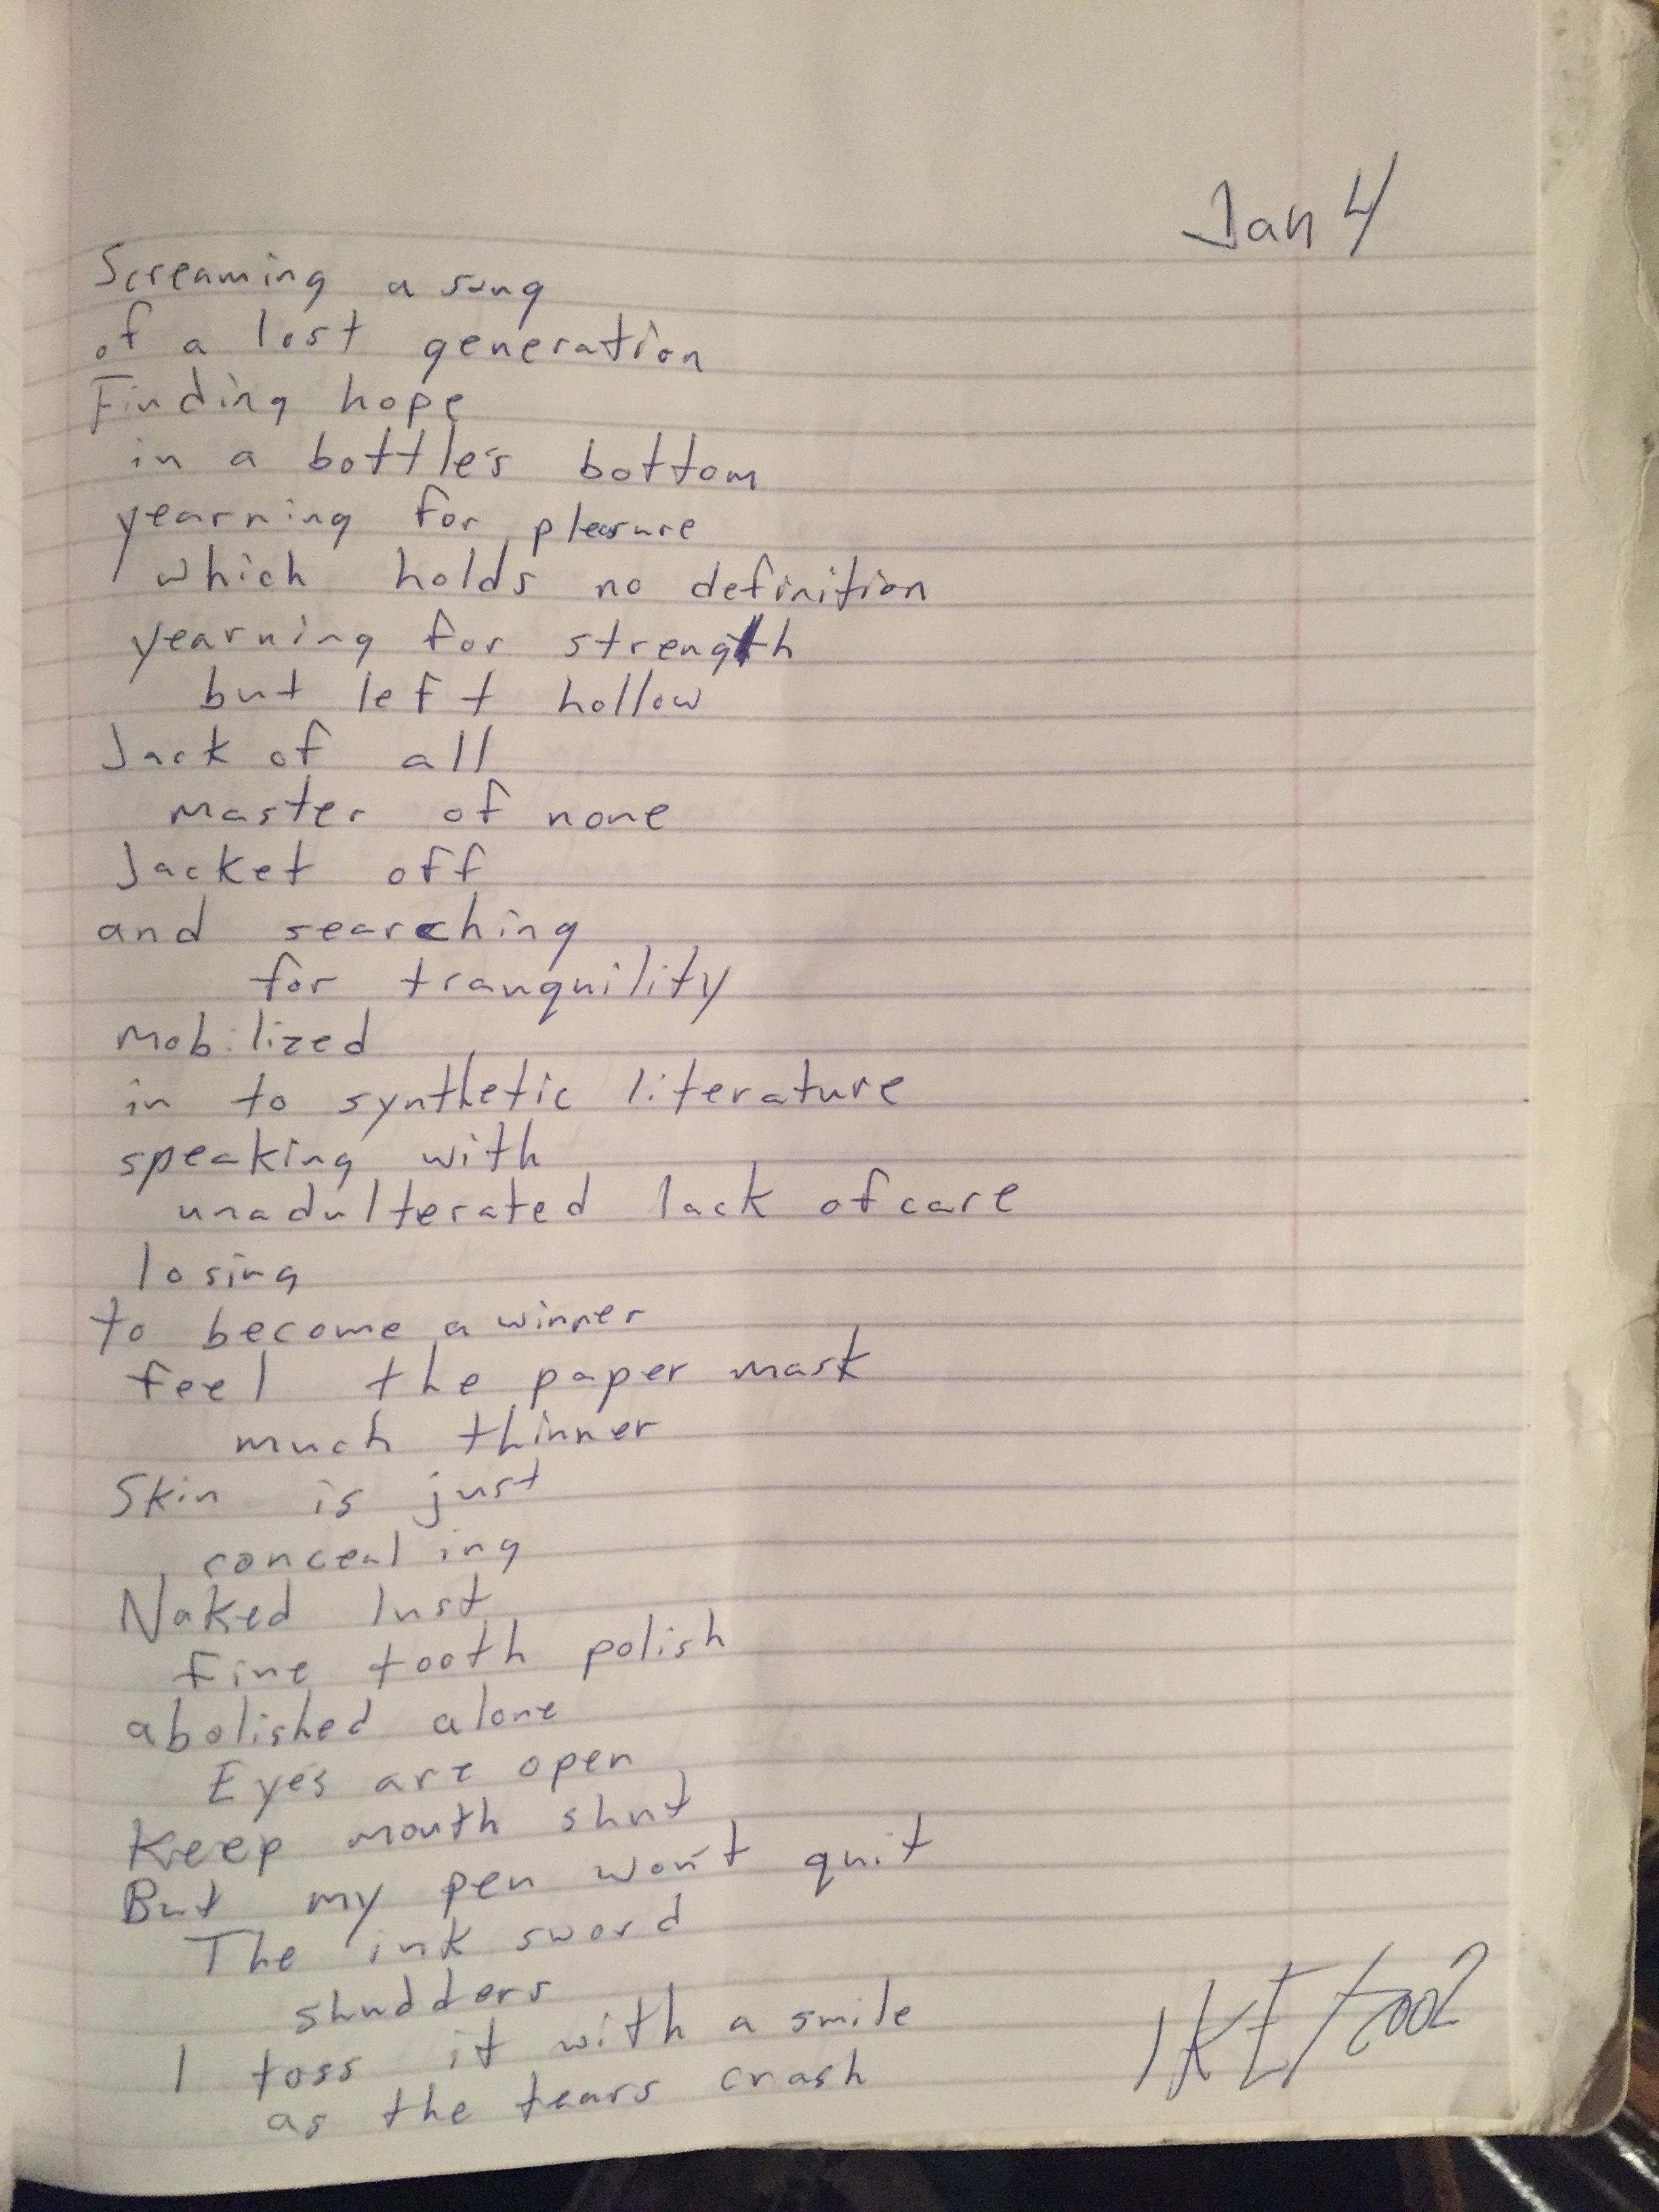 Jan 4
Screaming a song
of a lost generation
Finding hope
in a bottle's bottom
yearning for pleasure
which holds no definition
yearning for strength
but left hollow
Jack of all
master of none
Jacket off
and searching
for tranquility
mobilized
in to synthetic literature
speaking with
unadulterated lack of care
losing
to become a winner
feel the paper mask
much thinner
Skin is just
concealing
Naked lust
fine tooth polish
abolished alone
Eyes are open
Keep mouth shut
But my pen won't quit
The ink sword
shudders
I toss it with a smile
as the tears crash